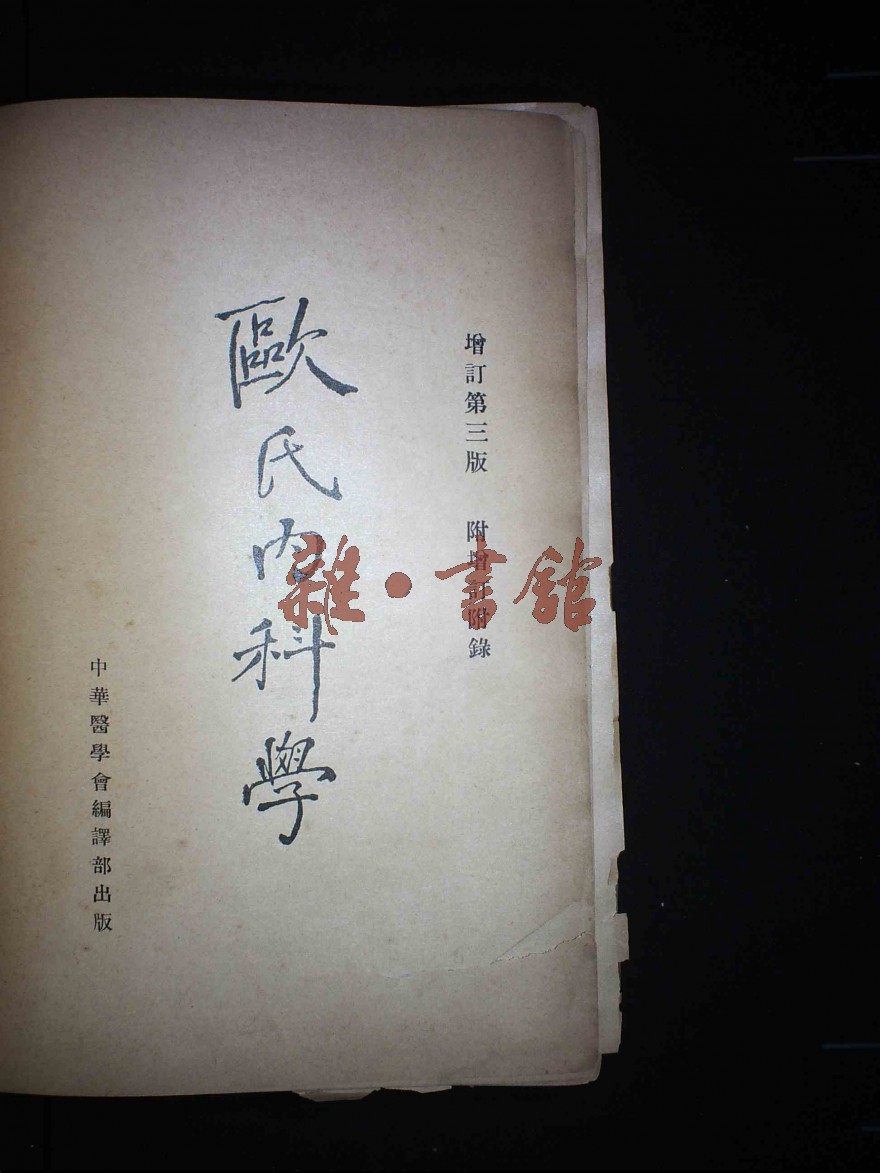 增訂第三版 附增訂附錄
歐氏內科學
中華醫學會編譯部出版
雜·書館